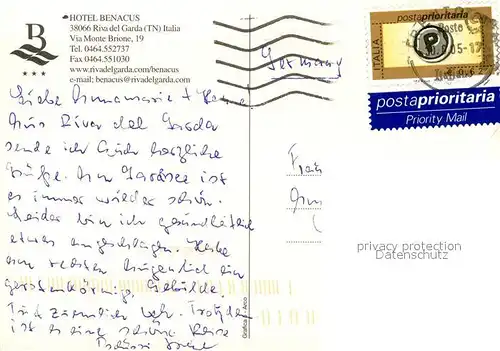 HOTEL BENACUS
38066 Riva del Garda (TN) Italia
Via Monte Brione, 19
Tel. 0464.552737
Fax 0464.551030
www.rivadelgarda.com/benacus
e-mail: benacus@rivadelgarda.com
B
Germany
postaprioritaria
ITALIA
P
postaprioritaria
Priority Mail
Liebe Annamarie +
Aus Riva del Garda
sende ich Euch herzliche
Grüße. Am Gardasee ist
es immer wieder schön.
Leider bin ich gesundheitlich
etwas angeschlagen. Habe
am rechten
Gebilde.
Tut ziemlich weh. Trotzdem
ist es eine schöne Reise
privacy protection
Datenschutz
Grafica 5 - Arco